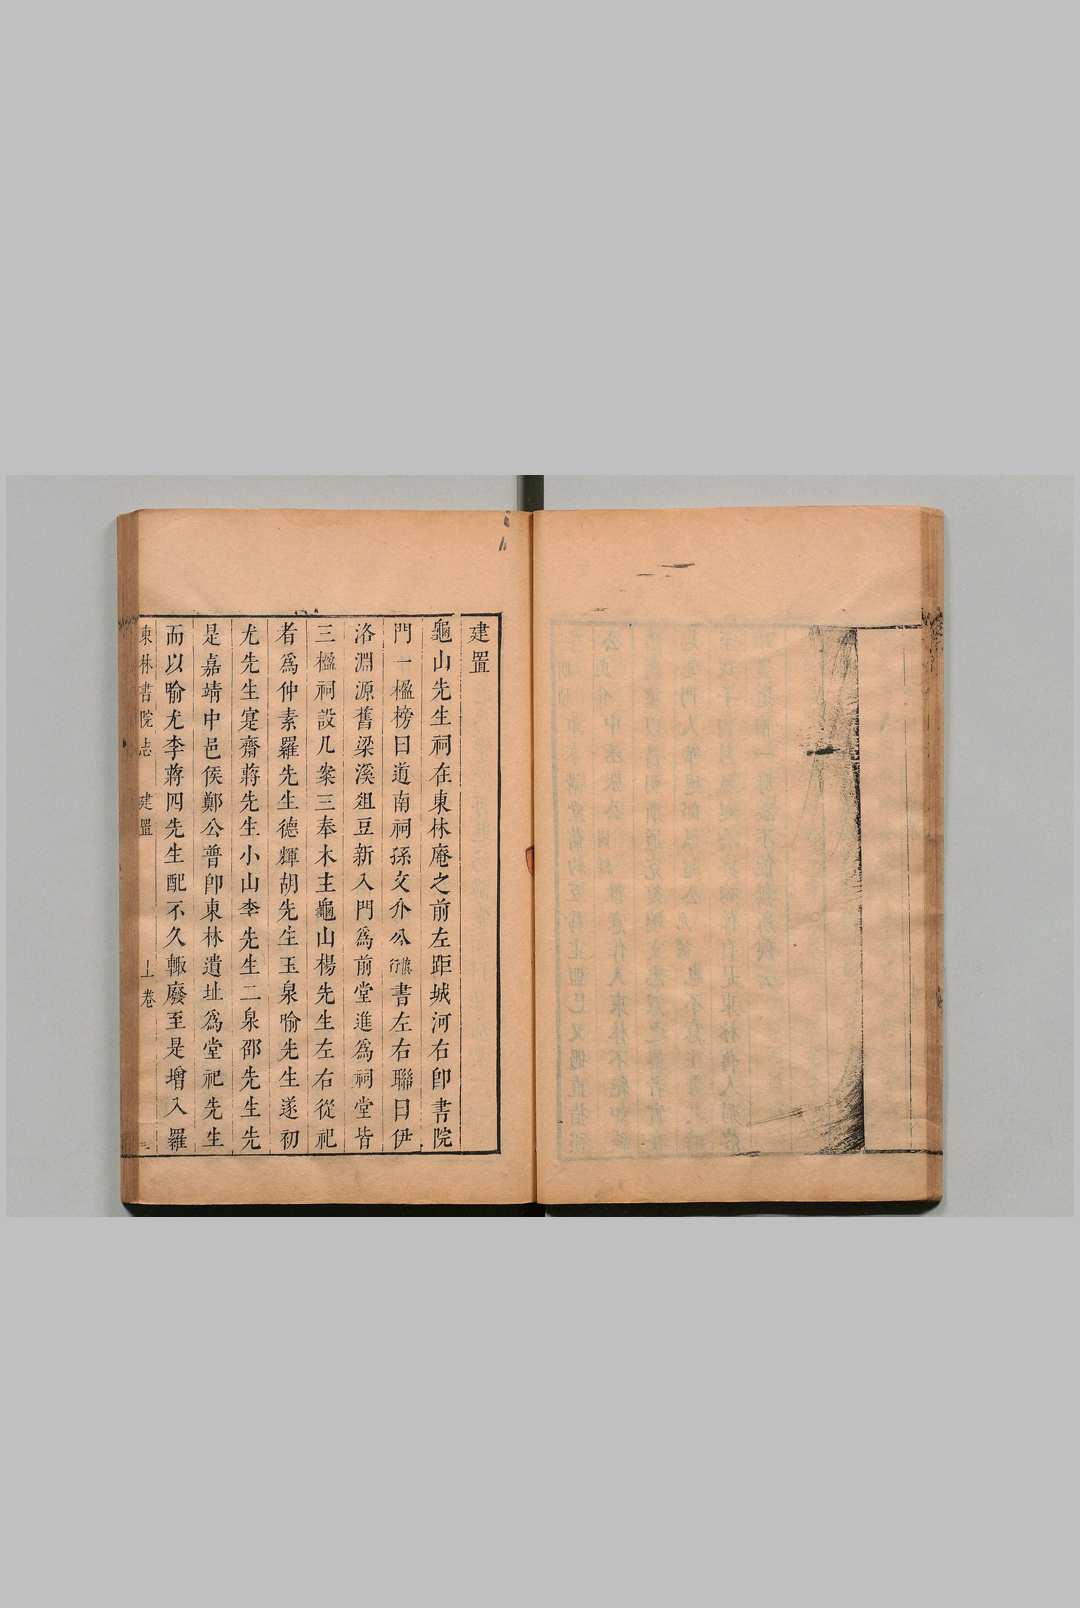 建置
龜山先生祠在東林庵之前左距城河右卽書院
門一楹榜曰道南祠孫文介公慎行書左右聯曰伊
洛淵源舊梁溪俎豆新入門爲前堂進爲祠堂皆
三楹祠設几案三奉木主龜山楊先生左右從祀
者爲仲素羅先生德輝胡先生玉泉喻先生遂初
尤先生寔齋蔣先生小山李先生二泉邵先生先
是嘉靖中邑侯鄭公普卽東林遺址爲堂祀先生
而以喻尤李蔣四先生配不久輙廢至是增入羅
東林書院志 建置 上卷 三